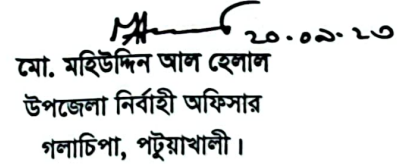 ২০.০৯.২৩
মো. মহিউদ্দিন আল হেলাল
উপজেলা নির্বাহী অফিসার
গলাচিপা, পটুয়াখালী।